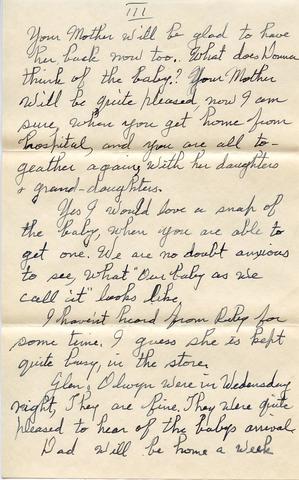 III
Your Mother will be glad to have
her back now too. What does Donna
think of the baby? Your Mother
will be quite pleased now I am
sure, when you get home from
hospital, and you are all to-
geather again, with her daughters
& grand-daughters.
Yes I would love a snap of
the baby, when you are able to
get one. We are no doubt anxious
to see, what "Our baby as we
call it" looks like,
I haven't heard from Ruby for
some time. I guess she is kept
quite busy, in the store.
Glen & Olwyn were in Wedensday
night, They are fine. They were quite
pleased to hear of the babys arrival.
Dad will be home a week